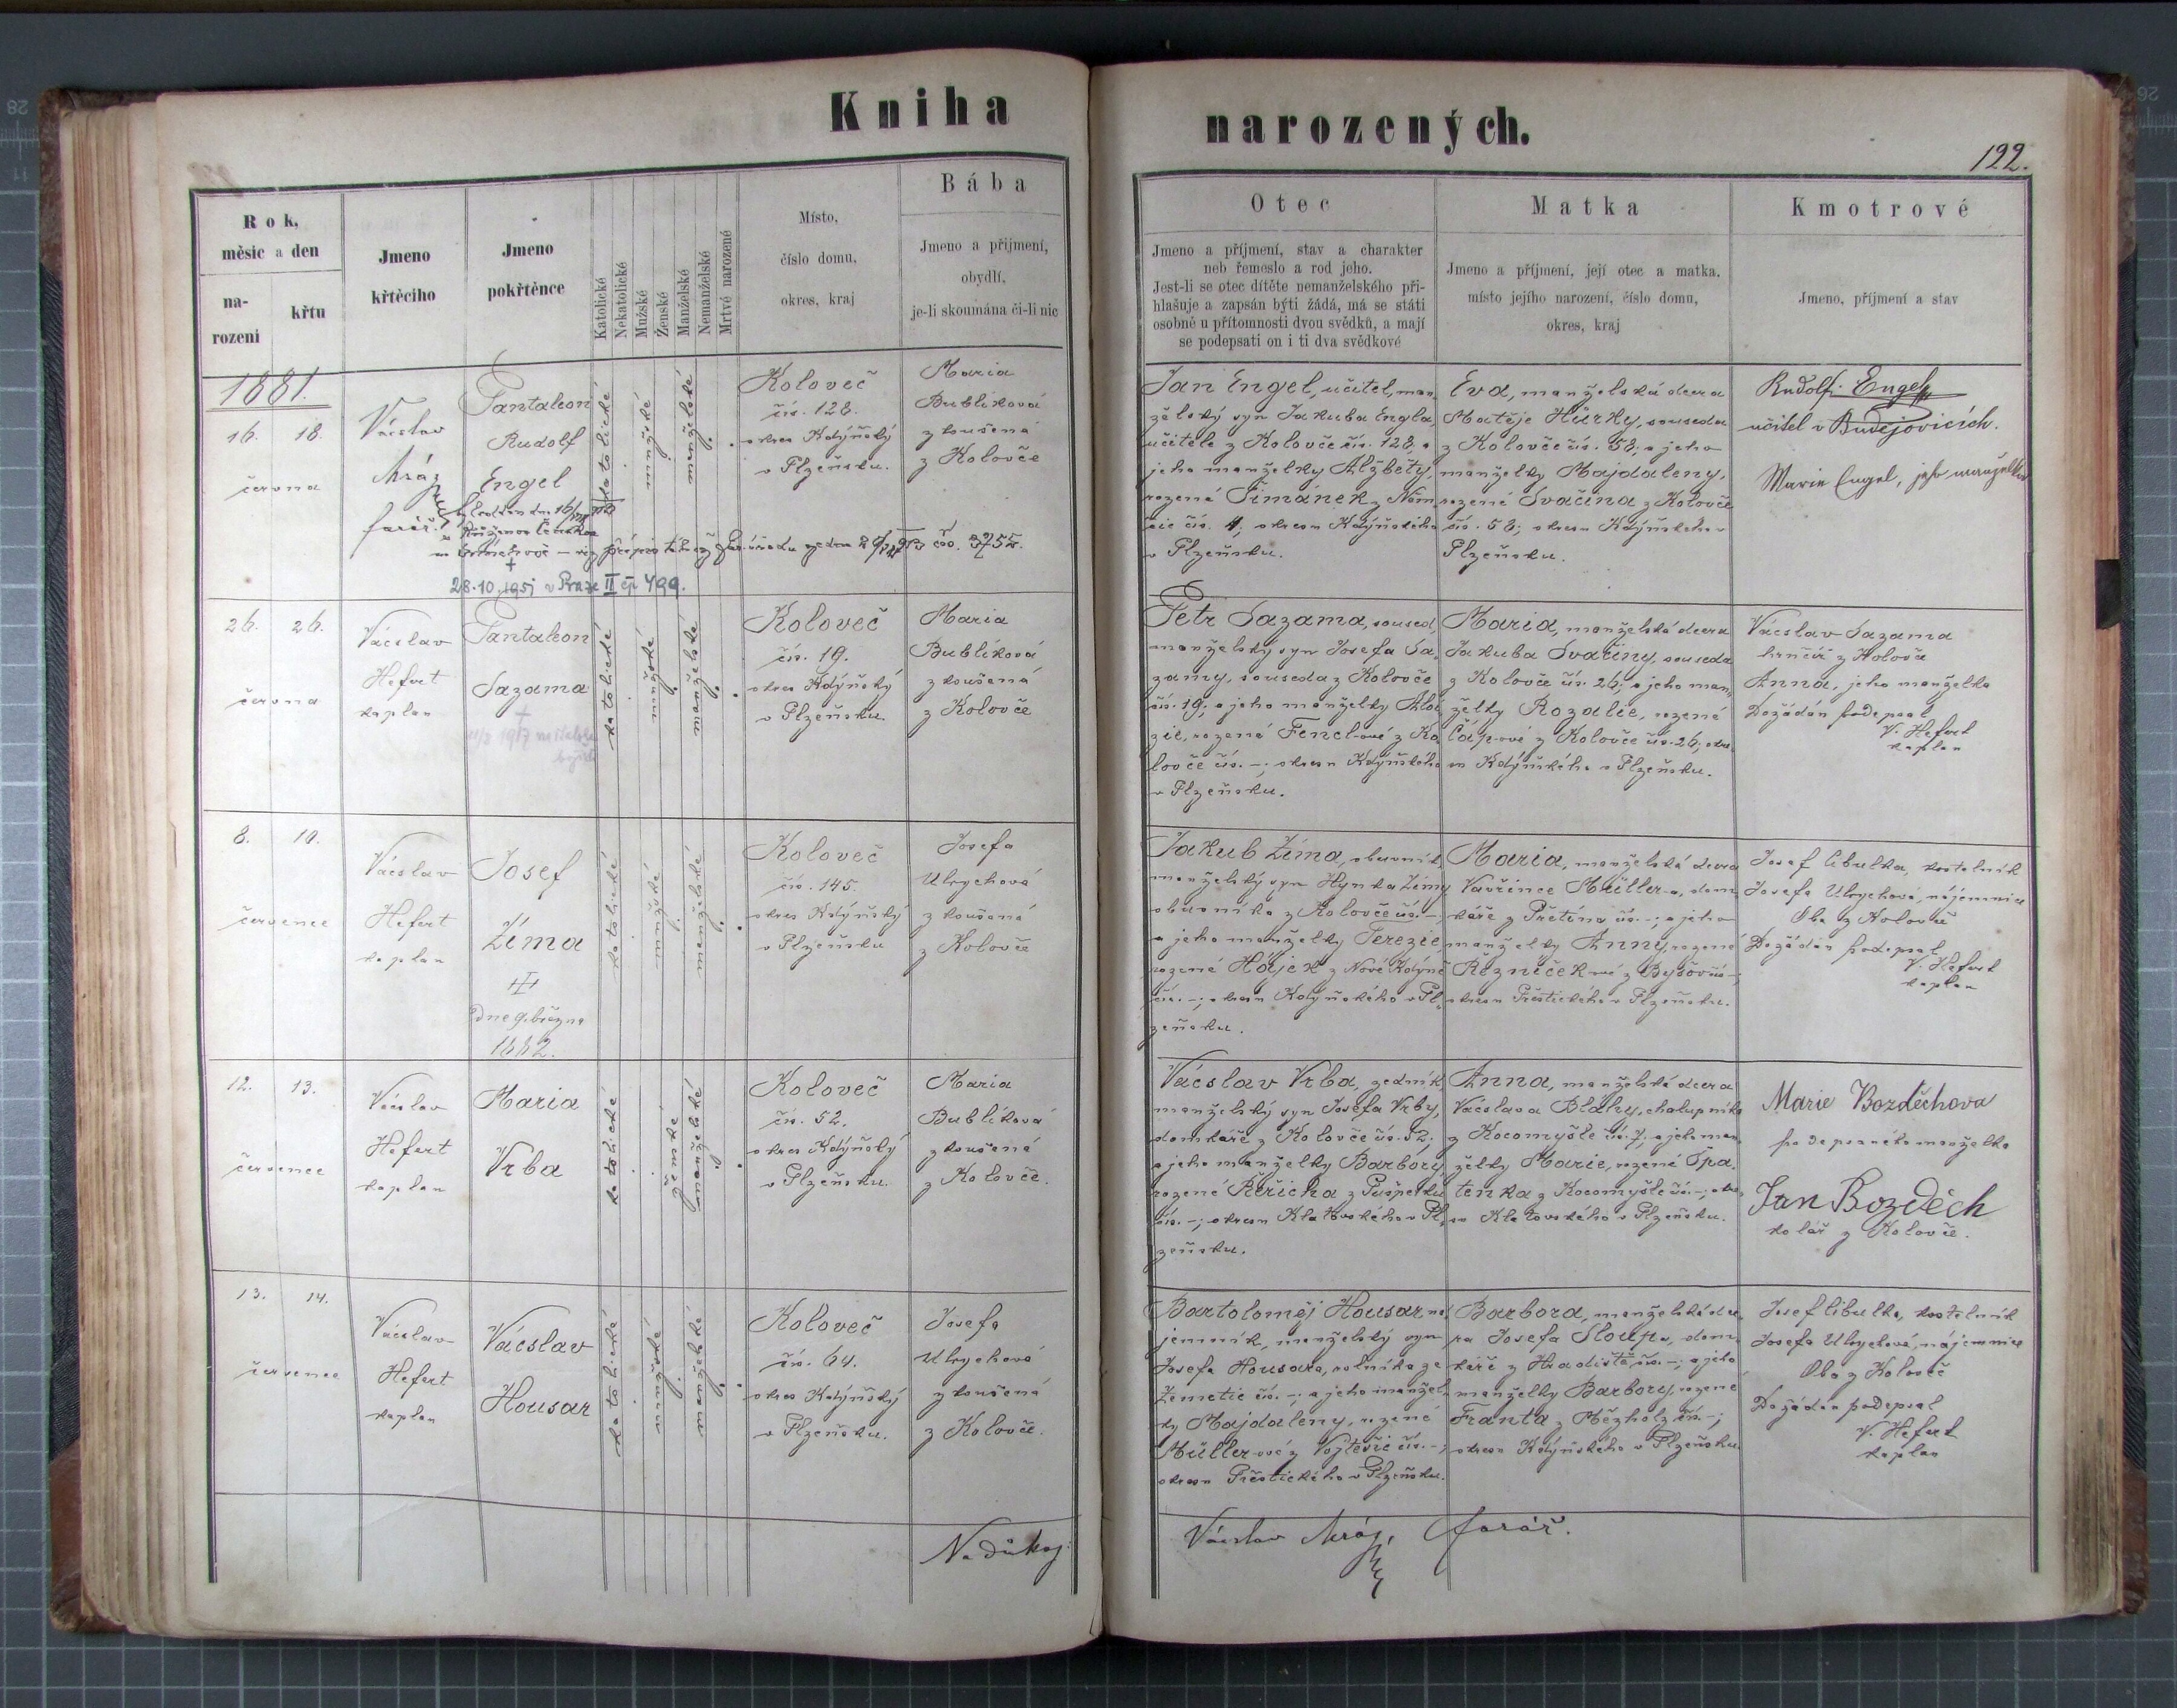 Kniha
narozených.
122.
Rok,
měsic a den
na-
rozeni
křtu
Jmeno
křtěcího
Jmeno
pokřtěnce
Katolické
Nekatolické
Mužské
Ženské
Manželské
Nemanželské
Mrtvé narozené
Místo,
číslo domu,
okres, kraj
Bába
Jmeno a přijmení,
obydlí,
je-li skoumána či-li nic
Otec
Jmeno a příjmení, stav a charakter
neb řemeslo a rod jeho.
Jest-li se otec dítěte nemanželského při-
hlašuje a zapsán býti žádá, má se státi
osobně u přítomnosti dvou svědků, a mají
se podepsati on i ti dva svědkové
Matka
Jmeno a příjmení, její otec a matka.
místo jejího narození, číslo domu,
okres, kraj
Kmotrové
Jmeno, příjmení a stav
1881.
16. 18.
června
Vácslav
Mráz
farář.
Pantaleon
Rudolf
Engel
28.10.1951 v Praze II čp 499.
katolické
mužské
manželské
Koloveč
čís. 128.
okres Kdýňský
v Plzeňsku.
Maria
Bublíková
zkoušená
z Kolovče
Jan Engel, učitel, man,
želský syn Jakuba Engla,
učitele z Kolovče čís. 128, a
jeho manželky Alžběty,
rozené Šimánek z Něm,
čic čís. 4; okresu Kdýňského
v Plzeňsku.
Eva, manželská dcera
Matěje Hůrky, souseda
z Kolovče čís. 58; a jeho
manželky Majdaleny,
rozené Svačina z Kolovče
čís. 58; okresu Kdýňského v
Plzeňsku.
Rudolf Engel
učitel v Budějovicích.
Marie Engel, jeho manželka
26. 26.
června
Vácslav
Hefert
kaplan
Pantaleon
Sazama
katolické
mužské
manželské
Koloveč
čís. 19.
okres Kdýňský
v Plzeňsku.
Maria
Bublíková
zkoušená
z Kolovče
Petr Sazama, soused,
manželský syn Josefa Sa,
zamy, souseda z Kolovče
čís. 19; a jeho manželky Aloi
zie, rozené Fenclové z Ko
lovče čís. -; okresu Kdýňského
v Plzeňsku.
Maria, manželská dcera
Jakuba Svačiny, souseda
z Kolovče čís. 26; a jeho man,
želky Rozalie, rozené
Čáp-ové z Kolovče čís. 26; okre,
su Kdýňského v Plzeňsku.
Vácslav Sazama
hrnčíř z Kolovče
Anna, jeho manželka
Dožádán podepsal
V. Hefert
kaplan
8. 10.
července
Vácslav
Hefert
kaplan
Josef
Zíma
dne 9. března
1882.
katolické
mužské
manželské
Koloveč
čís. 145.
okres Kdýňský
v Plzeňsku
Josefa
Ulrychová
zkoušená
z Kolovče
Jakub Zíma, obuvník
manželský syn Hynka Zímy
obuvníka z Kolovče čís. -;
a jeho manželky Terezie
rozené Hájek z Nové Kdýně
čís. -; okresu Kdýňského v Pl,
zeňsku.
Maria, manželská dcera
Vavřince Müller-a, dom,
káře z Přetína čís. -; a jeho
manželky Anny, rozené
Řezníček-ové z Byšov čís -;
okresu Přeštického v Plzeňsku.
Josef Cibulka, kostelník
Josefa Ulrychová, nájemnice
Oba z Kolovče
Dožádán podepsal
V. Hefert
kaplan
12. 13.
července
Vácslav
Hefert
kaplan
Maria
Vrba
katolické
ženské
manželské
Koloveč
čís. 52.
okres Kdýňský
v Plzeňsku.
Maria
Bublíková
zkoušená
z Kolovče.
Vácslav Vrba, zedník
manželský syn Josefa Vrby,
domkáře z Kolovče čís. 52;
a jeho manželky Barbory,
rozené Řeřicha z Pušperku
čís. -; okresu Klatovského v Pl,
zeňsku.
Anna, manželská dcera
Vácslava Bláhy, chalupníka
z Kocomyšle čís. 7; a jeho man,
želky Marie, rozené Špa,
tenka z Kocomyšle čís. -; okre,
su Klatovského v Plzeňsku.
Marie Bozděchova
podepsaného manželka
Jan Bozděch
kolář z Kolovče.
13. 14.
července
Vácslav
Hefert
kaplan
Vácslav
Housar
katolické
mužské
manželské
Koloveč
čís. 64.
okres Kdýňský
v Plzeňsku.
Josefa
Ulrychová
zkoušená
z Kolovče.
Bartoloměj Housar, ná,
jemník, manželský syn
Josefa Housara, rolníka ze
Zemětic čís. -; a jeho manžel,
ky Majdaleny, rozené
Müller-ové z Vojtěšic čís. -;
okresu Přeštického v Plzeňsku.
Barbora, manželská dce,
ra Josefa Sloupa, dom,
káře z Hradiště čís. -; a jeho
manželky Barbory, rozené
Franta z Měžholz čís. -;
okresu Kdýňského v Plzeňsku
Josef Cibulka, kostelník
Josefa Ulrychová, nájemnice
Oba z Kolovče
Dožádán podepsal
V. Hefert
kaplan
Na důkaz:
Vácslav Mráz, farář.